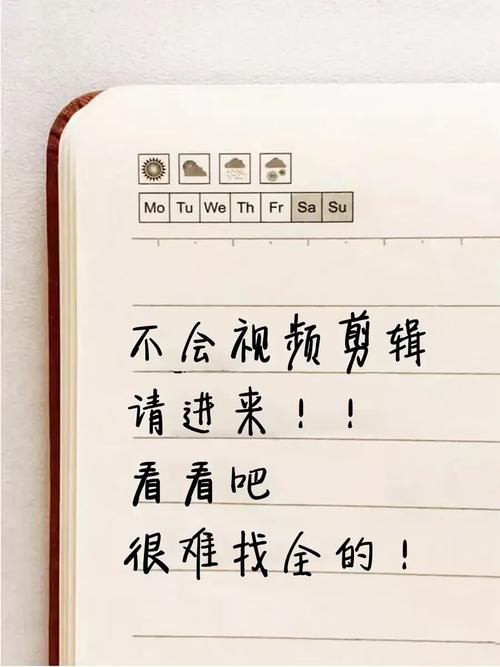 Mo Tu We Th Fr Sa Su
不会视频剪辑
请进来！！
看看吧
很难找全的！